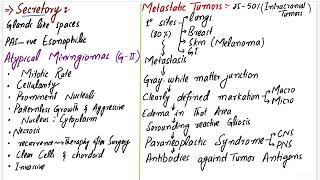 ⇒ Secretory:
Glands like spaces
PAS-+ve Esonophilic
Atypical Miningiomas (G-II)
• Mitotic Rate
• Cellularity
• Prominent Nucleoli
• Patternless Growth & Aggresive
Nucleus : Cytoplasm
• Necrosis
• recurrence → therapy after Surgery
• Clear Cells & chordoid
• Invasive
Metastatic Tumors → 25-50% (Intracranial Tumors)
1° sites → Lungs
(80%) → Breast
→ Skin (Melanoma)
→ GI
Metastasis
Gray-white matter junction
Clearly defined markation → Macro
→ Micro
Edema in that Area
Sorounding reactive Gliosis
Paraneoplastic Syndrome → CNS
→ PNS
Antibodies against Tumor Antigens